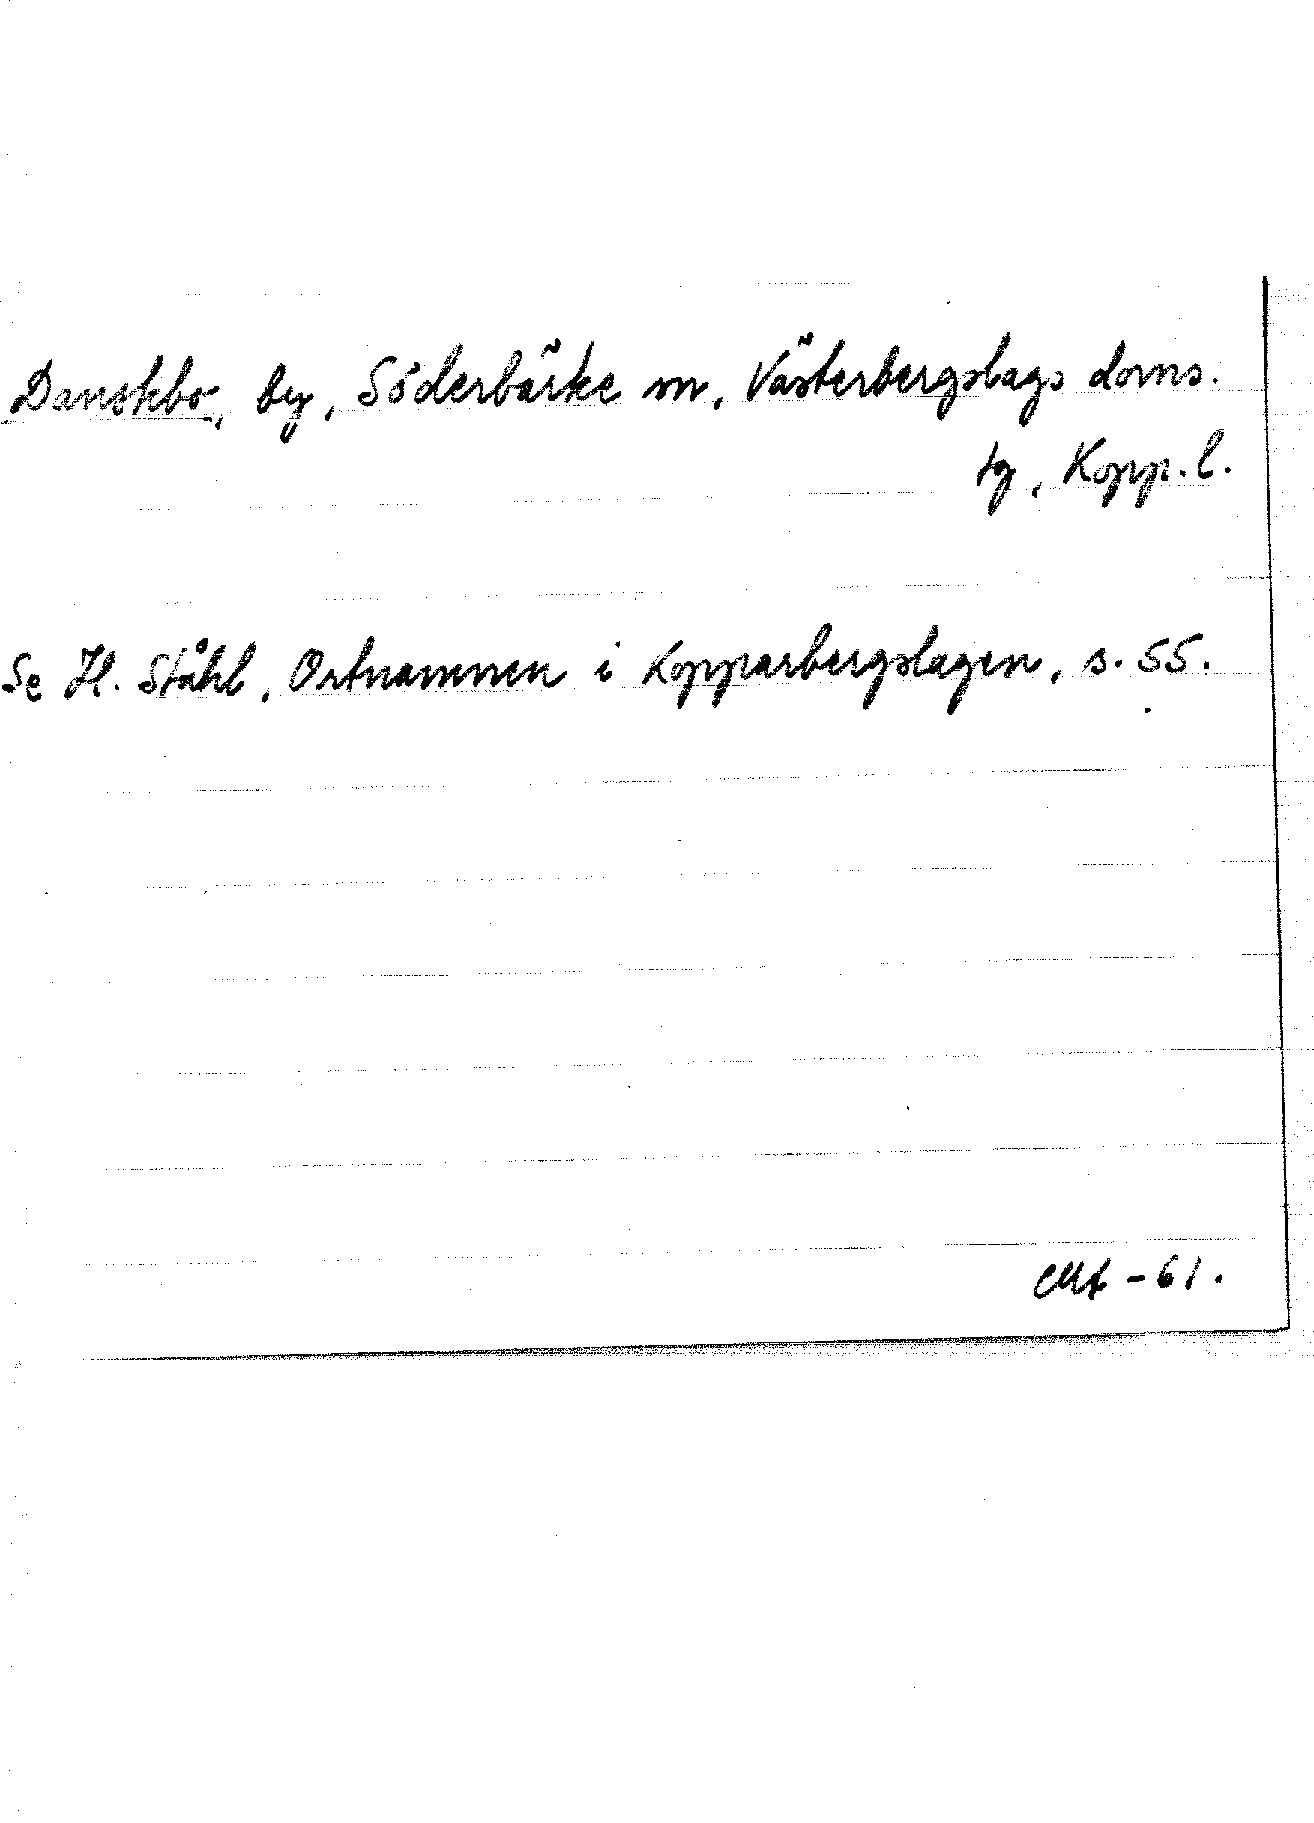 Danskbo, by, Söderbärke sn, Västerbergslags doms.
tg, Kopp. l.
Se H. Ståhl, Ortnamnen i Kopparbergslagen, s. 55.
-61.